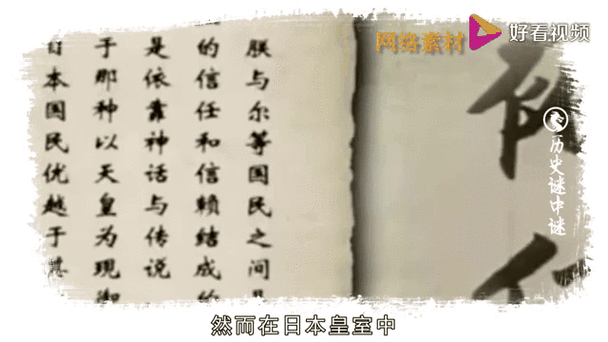 网络素材
好看视频
朕与尔等国民之间
的信任和信赖结成的
是依靠神话与传说
于那种以天皇为現御
日本国民优越于其
历史谜中谜
然而在日本皇室中